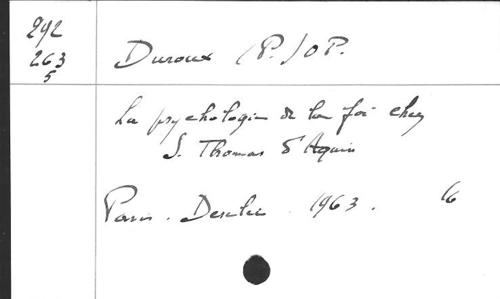 292
263
5
Duroux (P.) O P.
La psychologie de la foi chez
S. Thomas d'Aquin
Paris. Desclée. 1963. 16